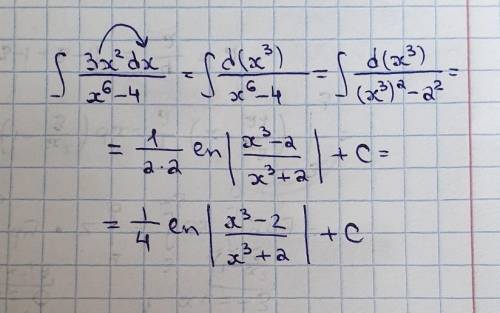 ∫ 3x² dx / (x⁶ − 4) = ∫ d(x³) / (x⁶ − 4) = ∫ d(x³) / ((x³)² − 2²) =
= 1/(2·2) ln |(x³ − 2)/(x³ + 2)| + C =
= 1/4 ln |(x³ − 2)/(x³ + 2)| + C